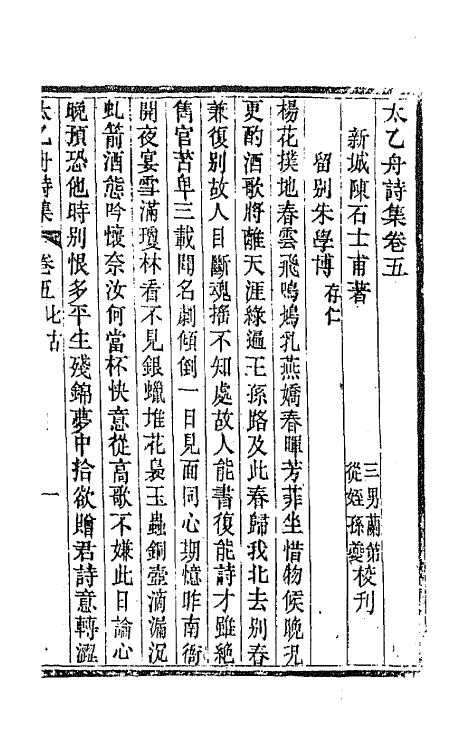 太乙舟詩集卷五
新城陳石士甫著
三男蘭第
從姪孫夔
校刊
留別朱學博存仁
楊花撲地春雲飛鳴鳩乳燕嬌春暉芳菲坐惜物候晚況
更酌酒歌將離天涯綠遍王孫路及此春歸我北去別春
兼復別故人目斷魂搖不知處故人能書復能詩才雖絕
雋官苦卑三載聞名劇傾倒一日見面同心期憶昨南衙
開夜宴雪滿瓊林看不見銀蠟堆花裊玉蟲銅壺滴漏沉
虬箭酒態吟懷奈汝何當杯快意從高歌不嫌此日論心
晚預恐他時別恨多平生殘錦夢中拾欲贈君詩意轉澀
太乙舟詩集
卷五 七古
一